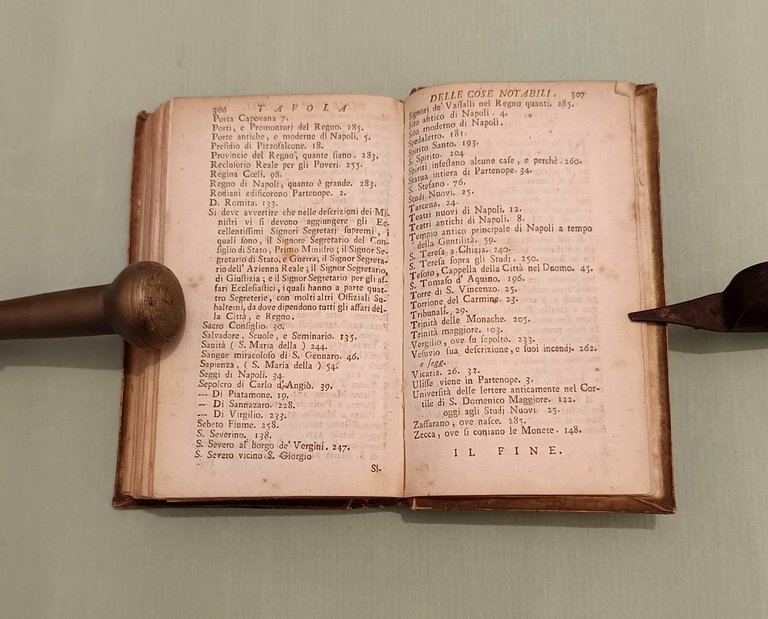 306 TAVOLA
Porta Capovana 7.
Porti, e Promontori del Regno. 285.
Porte antiche, e moderne di Napoli. 5.
Presidio di Pizzofalcone. 18.
Provincie del Regno, quante siano. 283.
Reclusorio Reale per gli Poveri. 255.
Regina Cœli. 98.
Regno di Napoli, quanto è grande. 283.
Rodiani edificorono Partenope. 2.
D. Romita. 133.
Si deve avvertire che nelle descrizioni dei Mi-
nistri vi si devono aggiungere gli Ec-
cellentissimi Signori Segretarj supremi, i
quali sono, il Signore Segretario del Con-
siglio di Stato, Primo Ministro; il Signor Se-
gretario di Stato, e Guerra; il Signor Segreta-
rio dell' Azienna Reale; il Signor Segretario,
di Giustizia; e il Signor Segretario per gli af-
fari Ecclesiastici, i quali hanno a parte quat-
tro Segreterie, con molti altri Offiziali Su-
balterni, da dove dipendono tutti gli affari del-
la Città, e Regno.
Sacro Consiglio. 30.
Salvadore, Scuole, e Seminario. 135.
Sanità ( S. Maria della ) 244.
Sangue miracoloso di S. Gennaro. 46.
Sapienza, ( S. Maria della ) 54.
Seggi di Napoli. 34.
Sepolcro di Carlo d'Angiò. 39.
— Di Piatamone. 19.
— Di Sannazaro. 228.
— Di Virgilio. 233.
Sebeto Fiume. 258.
S. Severino. 138.
S. Severo al borgo de' Vergini. 247.
S. Severo vicino S. Giorgio
Si-
DELLE COSE NOTABILI. 307
Signori de' Vassalli nel Regno quanti. 285.
Sito antico di Napoli. 4.
Sito moderno di Napoli.
Spedaletto. 181.
Spirito Santo. 193.
S. Spirito. 204.
Spiriti infestano alcune case, e perchè. 260.
Statua intiera di Partenope. 34.
S. Stefano. 76.
Studj Nuovi. 25.
Tarcena. 24.
Teatri nuovi di Napoli. 12.
Teatri antichi di Napoli. 8.
Tempio antico principale di Napoli a tempo
della Gentilità. 59.
S. Teresa a Chiaja. 240.
S. Teresa sopra gli Studj. 250.
Tesoro, Cappella della Città nel Duomo. 45.
S. Tomaso d' Aquino. 196.
Torre di S. Vincenzo. 25.
Torrione del Carmine. 23.
Tribunali. 29.
Trinità delle Monache. 205.
Trinità maggiore. 103.
Vergilio, ove fu sepolto. 233.
Vesuvio sua descrizione, e suoi incendj. 262.
e segg.
Vicaria. 26. 32.
Ulisse viene in Partenope. 3.
Università delle lettere anticamente nel Cor-
tile di S. Domenico Maggiore. 122.
oggi agli Studj Nuovi. 25.
Zaffarano, ove nasce. 285.
Zecca, ove si coniano le Monete. 148.
IL FINE.